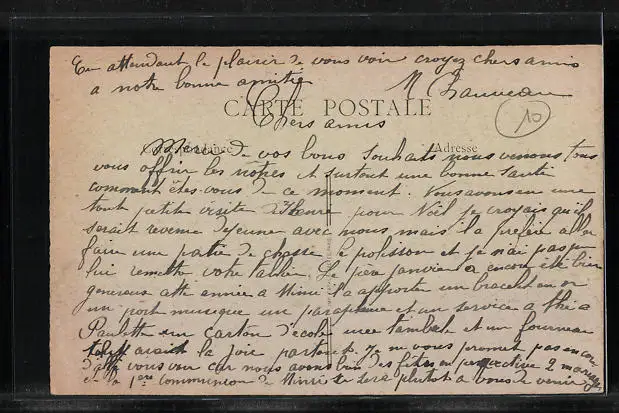 En attendant le plaisir de vous voir croyez chers amis
a notre bonne amitié
M Chauveau
10
CARTE POSTALE
Chers amis
Correspondance
Adresse
Merci de vos bons souhaits nous venons tous
vous offrir les notres et surtout une bonne santé
comment êtes-vous de ce moment. Vous avons eu une
tout petite visite d'Henri pour Noël je croyais qu'il
serait revenu déjeuné avec nous mais il a préféré aller
faire une partie de chasse le polisson et je n'ai pas pu
lui remettre votre . Le père janvier a encore été bien
généreux cette année a Mimi l'a apporté un bracelet en or
un port musique un parapluie et un service a thé a
Paulette un carton d'école une et un fourneau
 avait la joie partout. Je ne vous promet pas encore
d'aller vous voir car nous avons bien des fêtes en perspective 2 mariages
et la 1ère communion de Mimi se sera plutôt a vous de venir